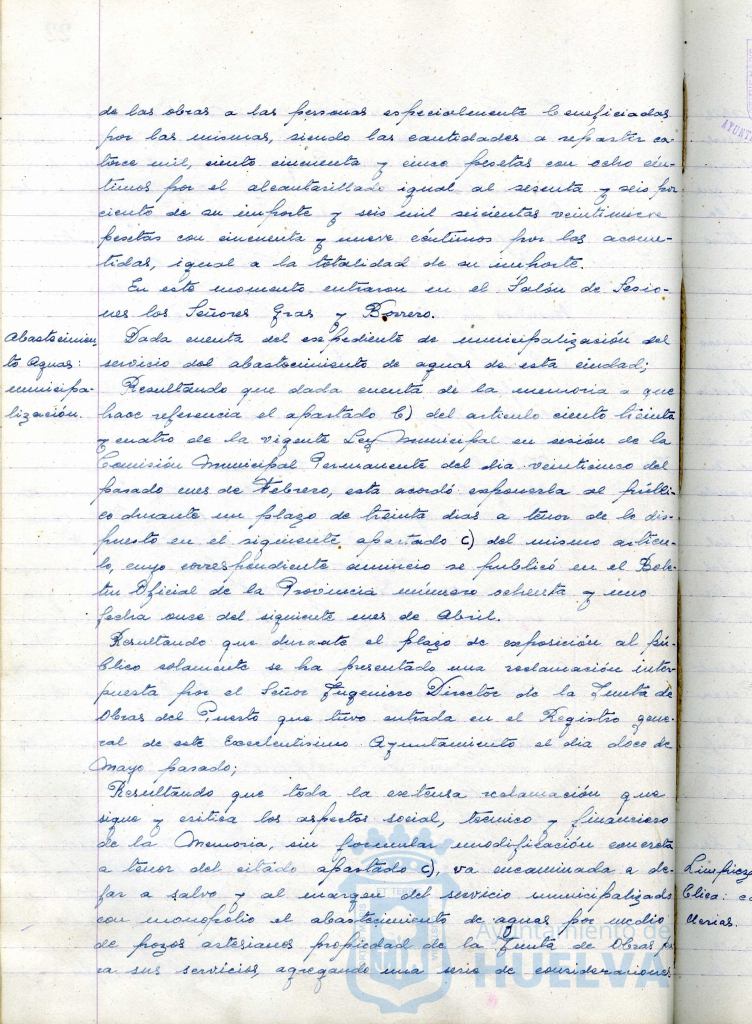 de las obras a las personas especialmente beneficiadas
por las mismas, siendo las cantidades a repartir ca-
torce mil, ciento cincuenta y cinco pesetas con ocho cén-
timos por el alcantarillado igual al sesenta y seis por
ciento de su importe y seis mil seicientas veintinueve
pesetas con cincuenta y nueve céntimos por las acome-
tidas, igual a la totalidad de su importe.
En este momento entraron en el Salón de Sesio-
nes los Señores Gras y Borrero.
Abastecimien-
to Aguas:
municipa-
lización.
Dada cuenta del expediente de municipalización del
servicio del abastecimiento de aguas de esta ciudad;
Resultando que dada cuenta de la memoria a que
hace referencia el apartado b) del articulo ciento treinta
y cuatro de la vigente Ley Municipal en sesión de la
Comisión Municipal Permanente del dia veinticinco del
pasado mes de Febrero, esta acordó exponerla al públi-
co durante un plazo de treinta dias a tenor de lo dis-
puesto en el siguiente apartado c) del mismo articu-
lo, cuyo correspondiente anuncio se publicó en el Bole-
tin Oficial de la Provincia número ochenta y uno
fecha once del siguiente mes de Abril.
Resultando que durante el plazo de exposición al pú-
blico solamente se ha presentado una reclamación inter-
puesta por el Señor Ingeniero Director de la Junta de
Obras del Puerto que tuvo entrada en el Registro gene-
ral de este Excelentisimo Ayuntamiento el dia doce de
Mayo pasado;
Resultando que toda la extensa reclamación que
sigue y critica los aspectos social, tecnico y financiero
de la Memoria, sin formular modificación concreta
a tenor del citado apartado c), va encaminada a de-
jar a salvo y al margen del servicio municipalizado
con monopolio el abastecimiento de aguas por medio
de pozos artesianos propiedad de la Junta de Obras
a sus servicios, agregando una serie de consideraciones
Ayuntamiento de
HUELVA